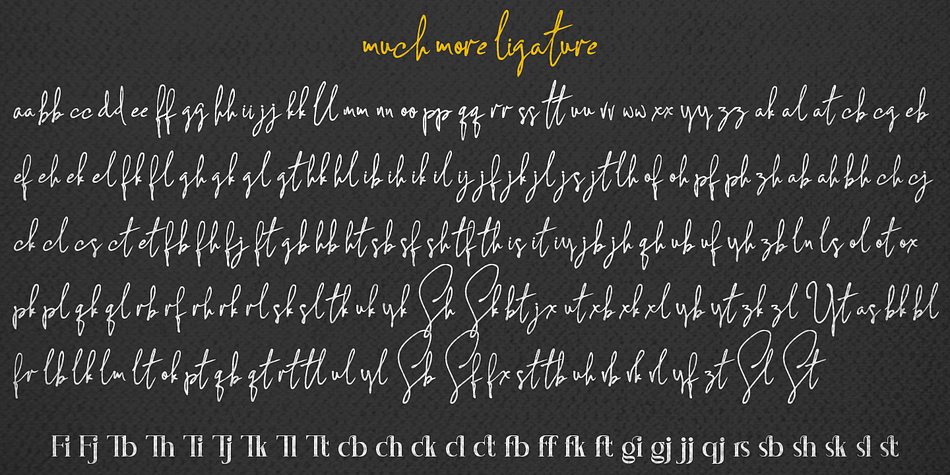 much more ligature
aa bb cc dd ee ff gg hh ii jj kk ll mm nn oo pp qq rr ss tt uu vv ww xx yy zz ak al at cb cg eb
ef eh ek el fk fl gh gk gl gt hk hl ib ih ik il ij jf jk jl js jt lh of oh pf ph zh ab ah bh ch cj
ck cl cs ct et fb fh fj ft gb hb ht sb sf sh tf th is it iy jb jh qh ub uf yh zb ln ls ol ot ox
pk pl qk ql rb rf rh rk rl sk sl tk uk yk Sh Sk bt jx ut xb xk xl yb yt zk zl Yt as bk bl
fr lb lk lm lt ok pt qb qt rt tl ul yl Sb Sf fx st tb uh vb vk vl yf zt Sl St
Fi Fj Tb Th Ti Tj Tk Tl Tt cb ch ck cl ct fb ff fk ft gi gj jj qj rs sb sh sk sl st